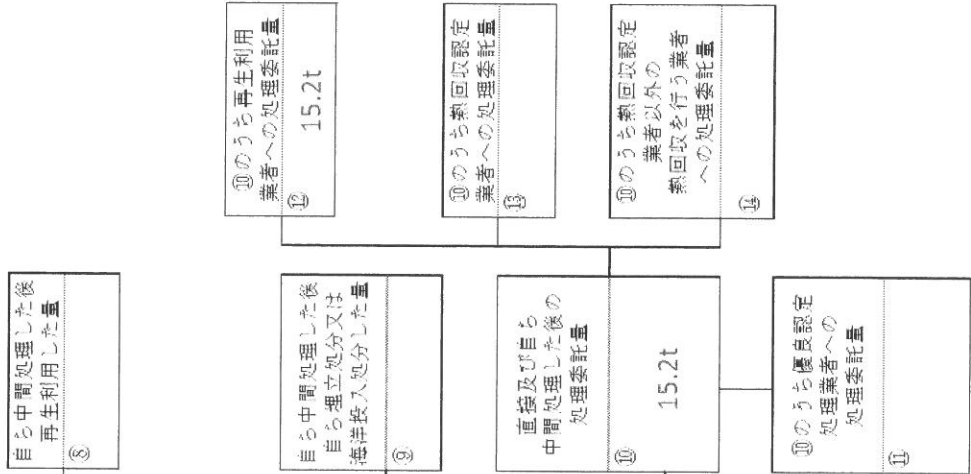 自ら中間処理した後
再生利用した量
⑧
自ら中間処理した後
自ら埋立処分又は
海洋投入処分した量
⑨
直接及び自ら
中間処理した後の
処理委託量
⑩
15.2t
⑩のうち優良認定
処理業者への
処理委託量
⑪
⑩のうち再生利用
業者への処理委託量
⑫
15.2t
⑩のうち熱回収認定
業者への処理委託量
⑬
⑩のうち熱回収認定
業者以外の
熱回収を行う業者
への処理委託量
⑭